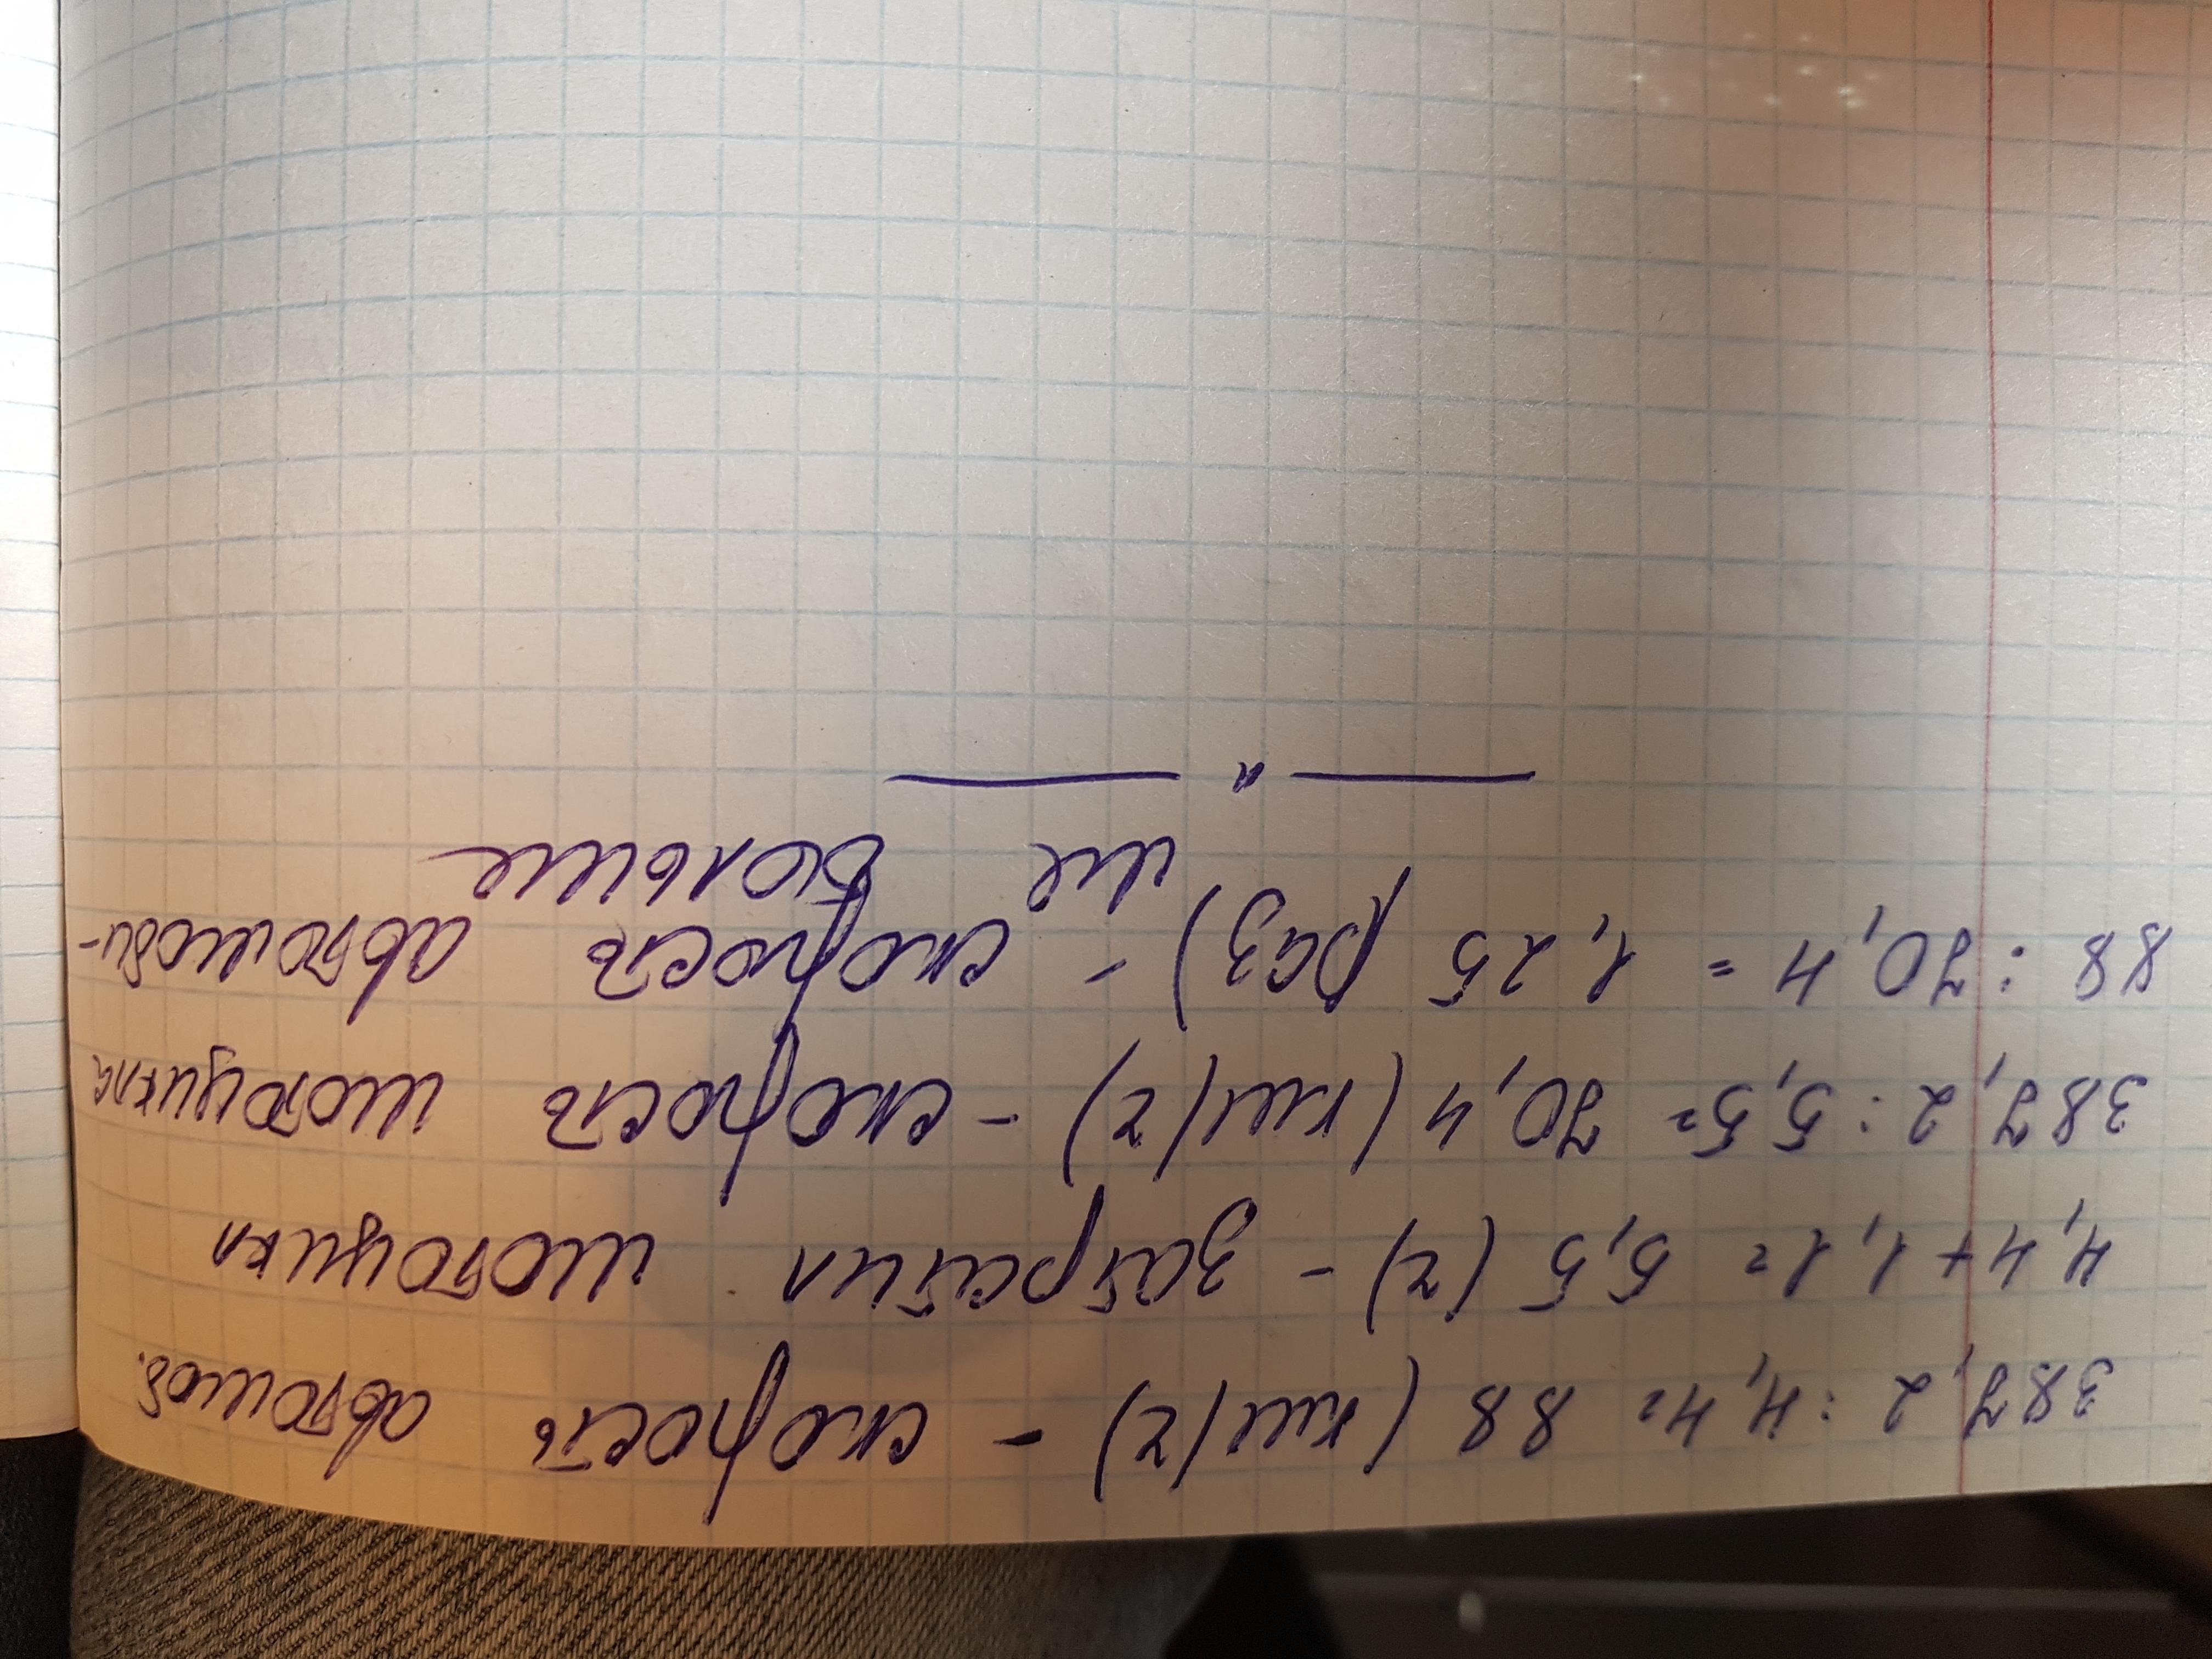 387,2 : 4,4 = 88 (км/ч) - скорость автомоб.
4,4 + 1,1 = 5,5 (ч) - затратил мотоцикл
387,2 : 5,5 = 70,4 (км/ч) - скорость мотоцикла
88 : 70,4 = 1,25 раз) - скорость автомоби-
ля больше